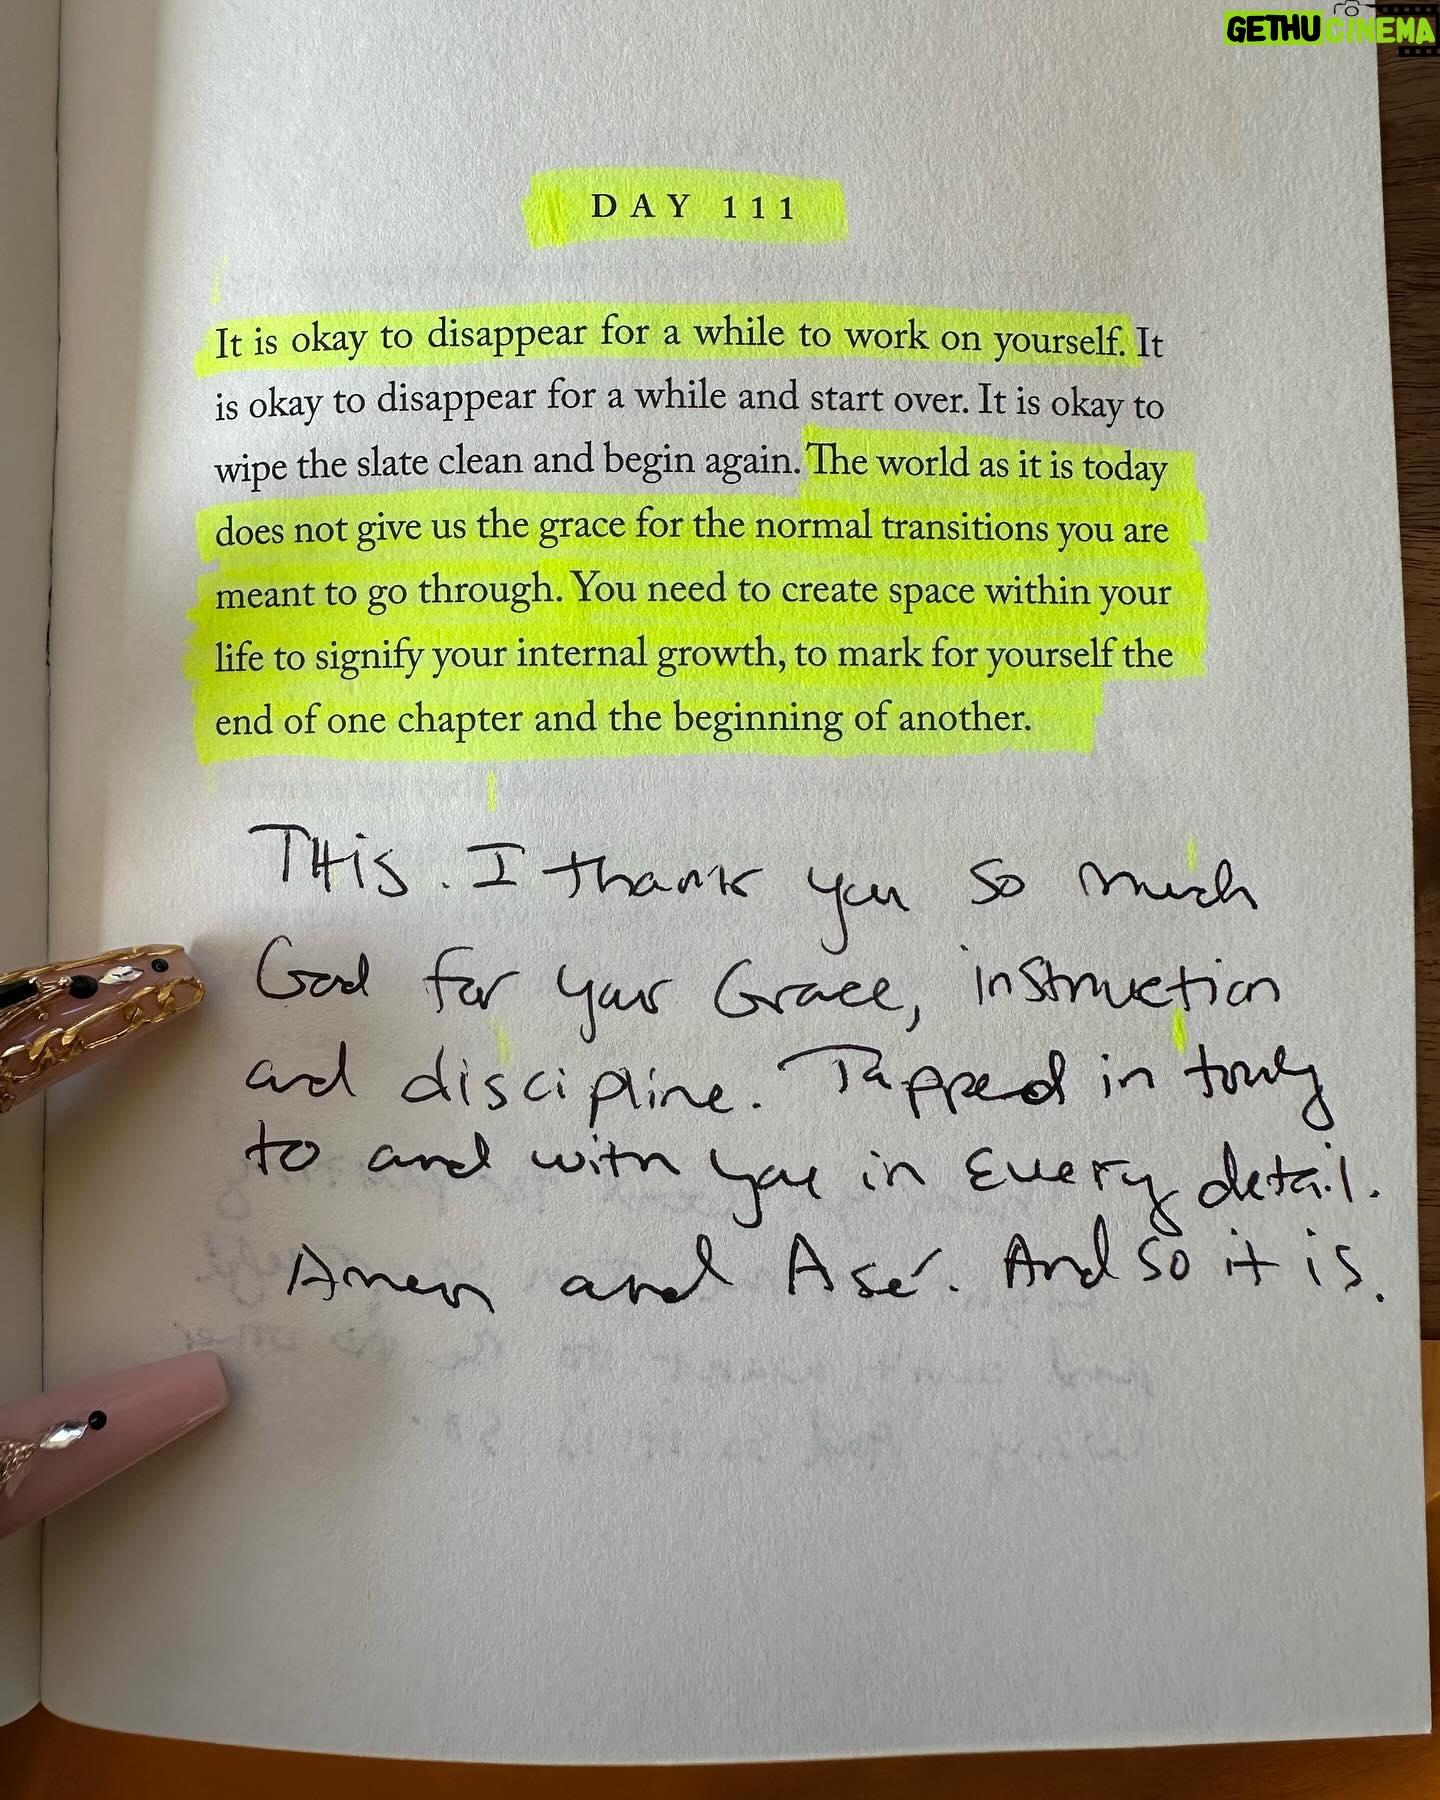 GETHUCINEMA
DAY 111
It is okay to disappear for a while to work on yourself. It
is okay to disappear for a while and start over. It is okay to
wipe the slate clean and begin again. The world as it is today
does not give us the grace for the normal transitions you are
meant to go through. You need to create space within your
life to signify your internal growth, to mark for yourself the
end of one chapter and the beginning of another.
THis. I thank you so much
God for your Grace, instruction
and discipline. Tapped in truly
to and with you in Every detail.
Amen and Asé. And so it is.